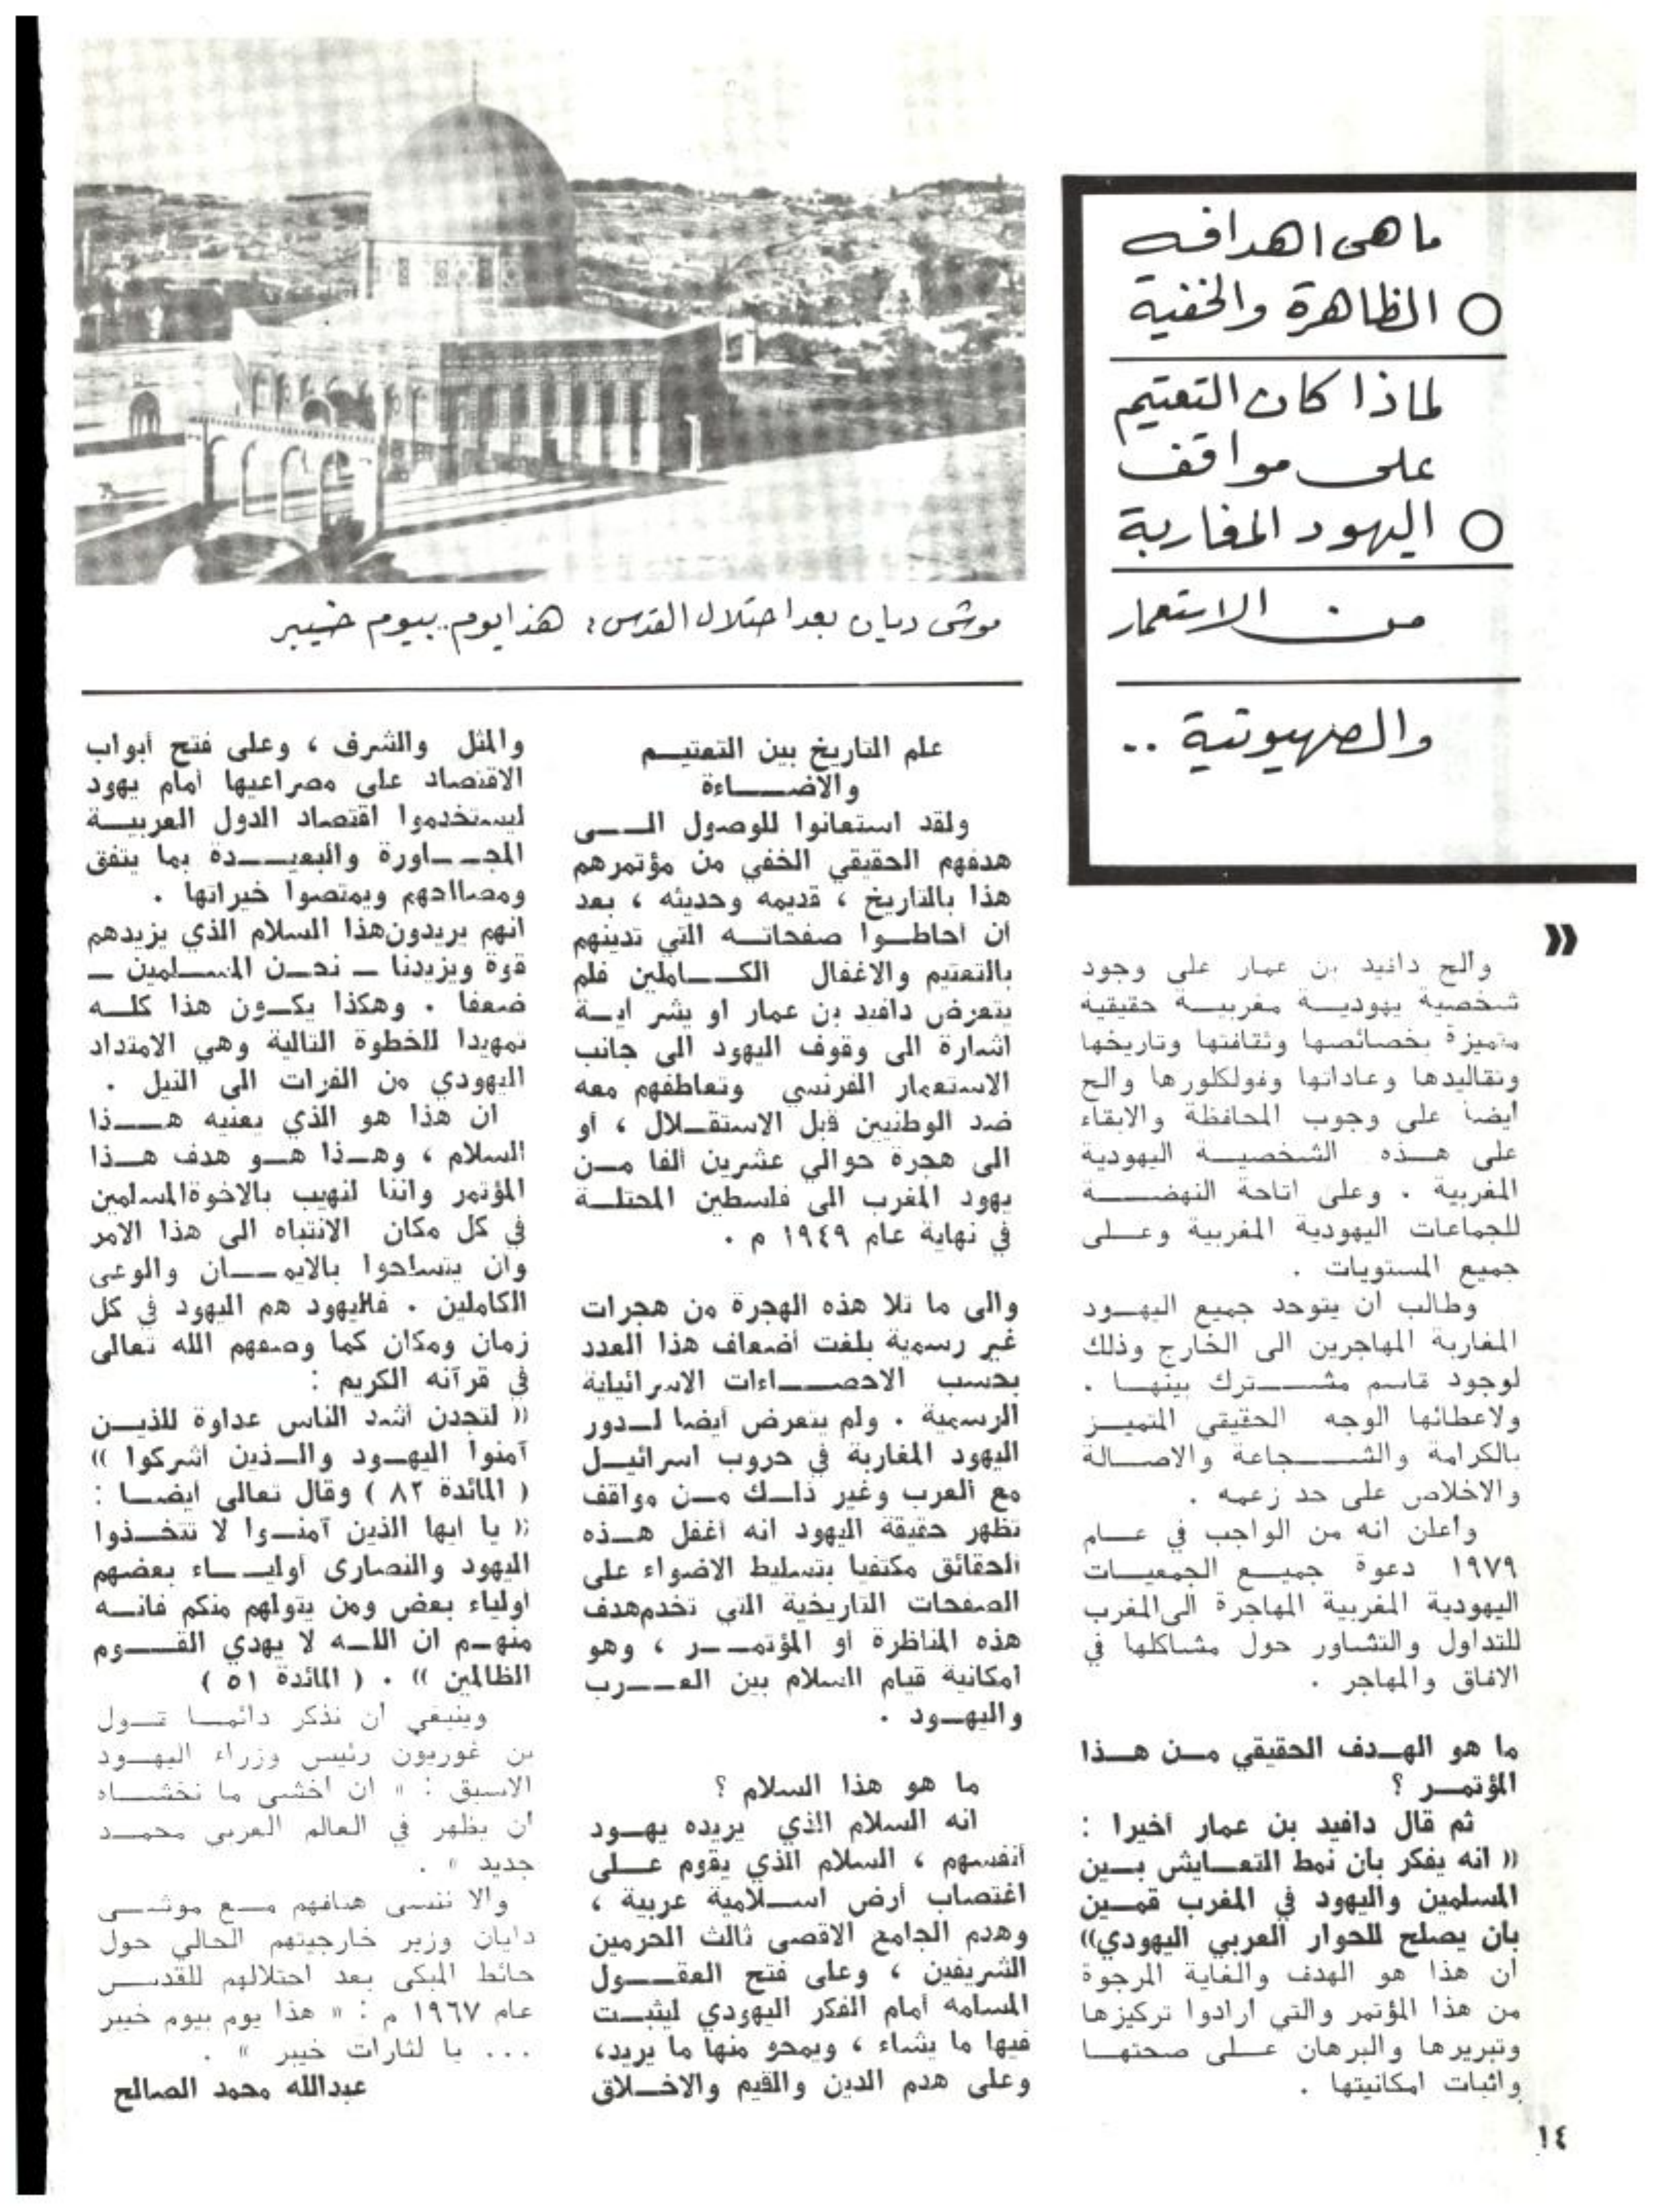 ما هى اهدافه
○ الظاهرة والخفية
لماذا كان التعتيم
على مواقف
○ اليهود المغاربة
من الاستعمار
والصهيونية ..
موشى ديان بعد احتلال القدس: هذا يوم.. بيوم خيبر
»
والح دافيد بن عمار على وجود
شخصية يهودية مغربية حقيقية
متميزة بخصائصها وثقافتها وتاريخها
وتقاليدها وعاداتها وفولكلورها والح
أيضا على وجوب المحافظة والابقاء
على هذه الشخصية اليهودية
المغربية . وعلى اتاحة النهضة
للجماعات اليهودية المغربية وعلى
جميع المستويات .
وطالب ان يتوحد جميع اليهود
المغاربة المهاجرين الى الخارج وذلك
لوجود قاسم مشترك بينها .
ولاعطائها الوجه الحقيقي المتميز
بالكرامة والشجاعة والاصالة
والاخلاص على حد زعمه .
واعلن انه من الواجب في عام
١٩٧٩ دعوة جميع الجمعيات
اليهودية المغربية المهاجرة الى المغرب
للتداول والتشاور حول مشاكلها في
الافاق والمهاجر .
ما هو الهدف الحقيقي من هذا
المؤتمر ؟
ثم قال دافيد بن عمار أخيرا :
(( انه يفكر بان نمط التعايش بين
المسلمين واليهود في المغرب قمين
بان يصلح للحوار العربي اليهودي))
ان هذا هو الهدف والغاية المرجوة
من هذا المؤتمر والتي ارادوا تركيزها
وتبريرها والبرهان على صحتها
واثبات امكانيتها .
علم التاريخ بين التعتيم
والاضاءة
ولقد استعانوا للوصول الى
هدفهم الحقيقي الخفي من مؤتمرهم
هذا بالتاريخ ، قديمه وحديثه ، بعد
أن أحاطوا صفحاته التي تدينهم
بالتعتيم والاغفال الكاملين فلم
يتعرض دافيد بن عمار او يشر اية
اشارة الى وقوف اليهود الى جانب
الاستعمار الفرنسي وتعاطفهم معه
ضد الوطنيين قبل الاستقلال ، أو
الى هجرة حوالي عشرين ألفا من
يهود المغرب الى فلسطين المحتلة
في نهاية عام ١٩٤٩ م .
والى ما تلا هذه الهجرة من هجرات
غير رسمية بلغت أضعاف هذا العدد
بحسب الاحصاءات الاسرائيلية
الرسمية . ولم يتعرض أيضا لدور
اليهود المغاربة في حروب اسرائيل
مع العرب وغير ذلك من مواقف
تظهر حقيقة اليهود انه أغفل هذه
الحقائق مكتفيا بتسليط الاضواء على
الصفحات التاريخية التي تخدم هدف
هذه المناظرة أو المؤتمر ، وهو
امكانية قيام السلام بين العرب
واليهود .
ما هو هذا السلام ؟
انه السلام الذي يريده يهود
أنفسهم ، السلام الذي يقوم على
اغتصاب أرض اسلامية عربية ،
وهدم الجامع الاقصى ثالث الحرمين
الشريفين ، وعلى فتح العقول
المسلمه أمام الفكر اليهودي ليثبت
فيها ما يشاء ، ويمحو منها ما يريد،
وعلى هدم الدين والقيم والاخلاق
والمثل والشرف ، وعلى فتح أبواب
الاقتصاد على مصراعيها أمام يهود
ليستخدموا اقتصاد الدول العربية
المجاورة والبعيدة بما يتفق
ومصالحهم ويمتصوا خيراتها .
انهم يريدون هذا السلام الذي يزيدهم
قوة ويزيدنا ــ نحن المسلمين ــ
ضعفا . وهكذا يكون هذا كله
تمهيدا للخطوة التالية وهي الامتداد
اليهودي من الفرات الى النيل .
ان هذا هو الذي يعنيه هذا
السلام ، وهذا هو هدف هذا
المؤتمر واننا لنهيب بالاخوة المسلمين
في كل مكان الانتباه الى هذا الامر
وان يتسلحوا بالايمان والوعى
الكاملين . فاليهود هم اليهود في كل
زمان ومكان كما وصفهم الله تعالى
في قرآنه الكريم :
(( لتجدن أشد الناس عداوة للذين
آمنوا اليهود والذين أشركوا ))
( المائدة ٨٢ ) وقال تعالى أيضا :
(( يا ايها الذين آمنوا لا تتخذوا
اليهود والنصارى أولياء بعضهم
أولياء بعض ومن يتولهم منكم فانه
منهم ان الله لا يهدي القوم
الظالمين )) . ( المائدة ٥١ )
وينبغي أن نذكر دائما قول
بن غوريون رئيس وزراء اليهود
الاسبق : " ان أخشى ما نخشاه
أن يظهر في العالم العربي محمد
جديد " .
والا ننسى هتافهم مع موشى
دايان وزير خارجيتهم الحالي حول
حائط المبكى بعد احتلالهم للقدس
عام ١٩٦٧ م : " هذا يوم بيوم خيبر
... يا لثارات خيبر " .
عبدالله محمد الصالح
١٤